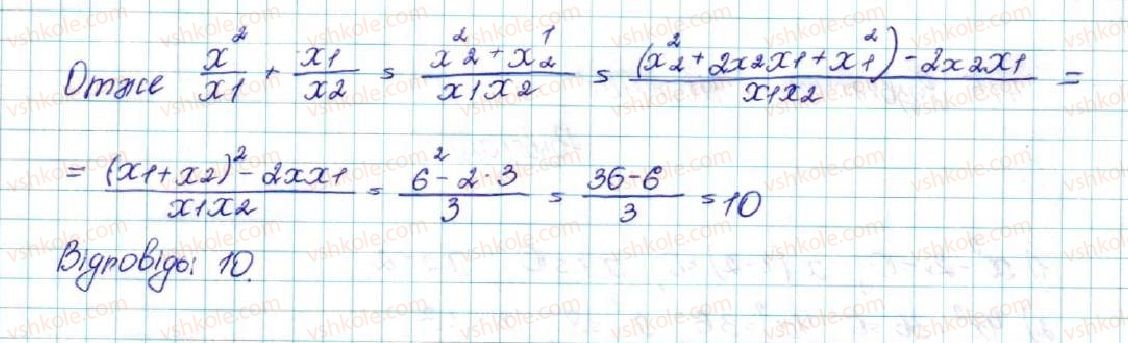 Отже x²/x1 + x1/x2 = x²2+x¹2/x1x2 = (x²2+2x2x1+x²1)-2x2x1/x1x2 =
= (x1+x2)²-2xx1/x1x2 = 6²-2·3/3 = 36-6/3 = 10
Відповідь: 10.
vshkole.com